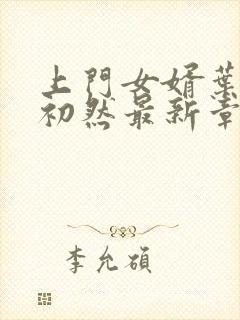 上門女婿葉
初然最新章
李允碩